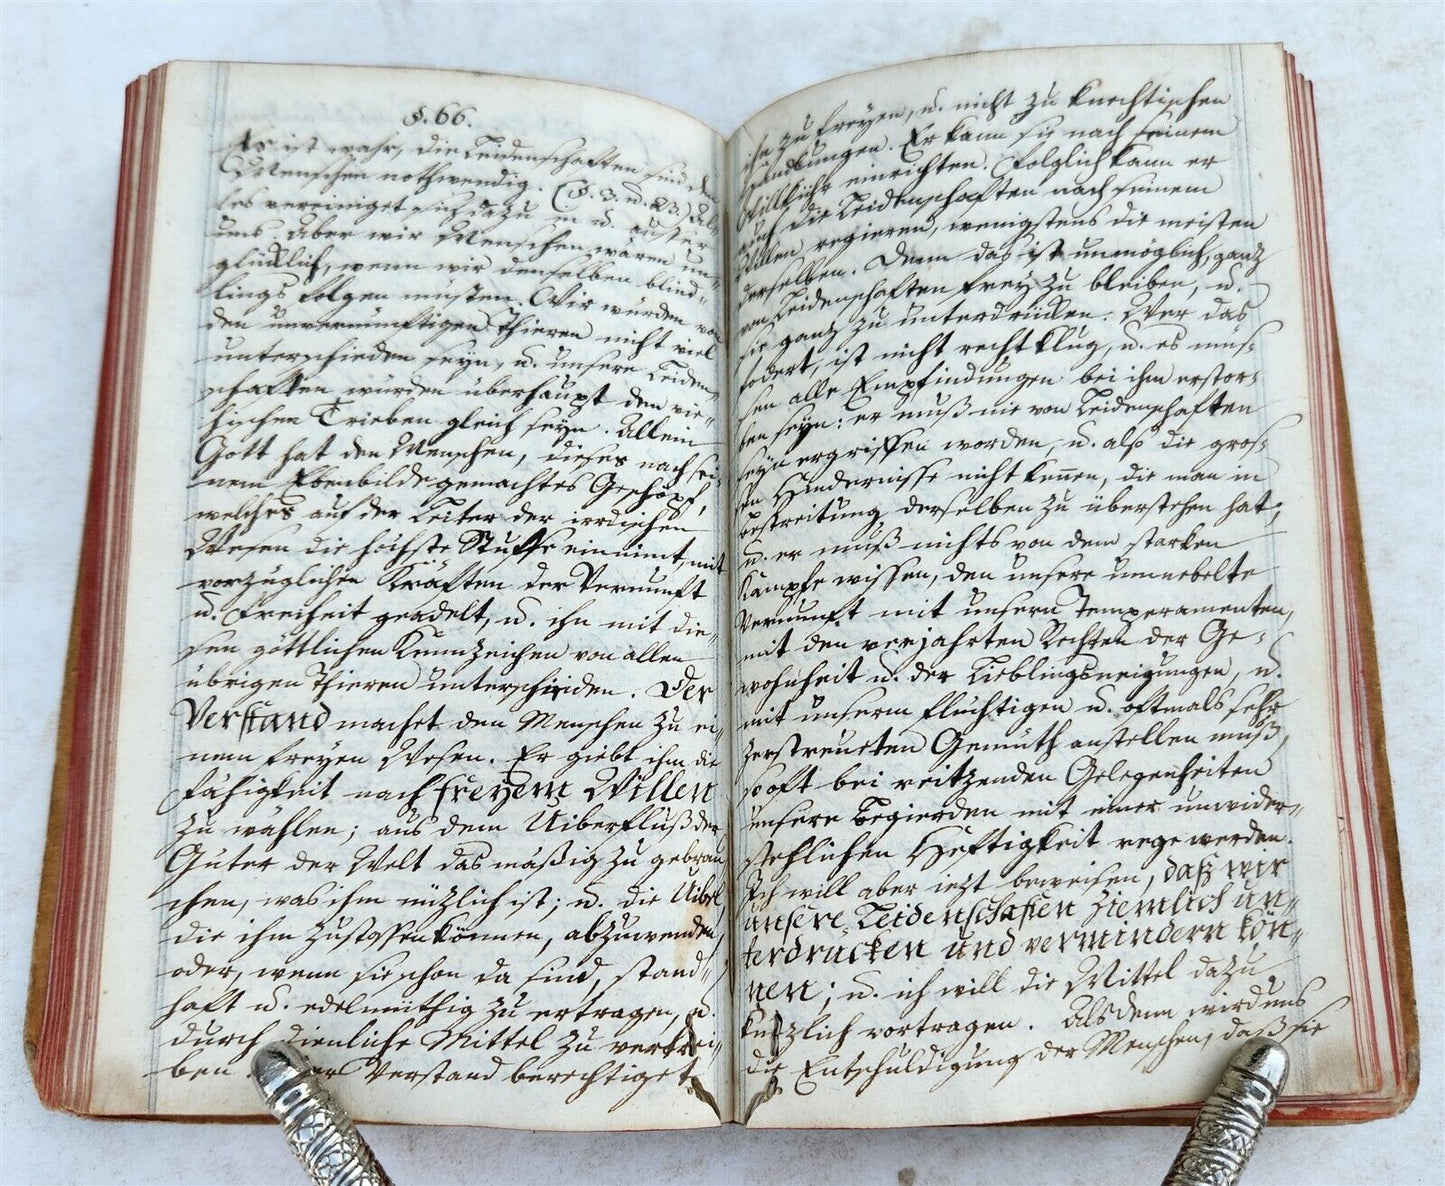 §. 66.
Es ist wahr, die Leidenschaften sind dem
Menschen nothwendig. (§. 3. u. 23.) Al-
les vereiniget sich dazu in u. ausser
uns. Aber wir Menschen wären un-
glücklich, wenn wir denselben blind-
lings folgen müsten. Wir würden von
den unvernünftigen Thieren nicht viel
unterschieden seyn, u. unsere Leiden-
schaften würden überhaupt den vie-
hischen Trieben gleich seyn. Allein
Gott hat den Menschen, dieses nach sei-
nem Ebenbilde gemachtes Geschöpf,
welches auf der Leiter der irrdischen
Wesen die höchste Stuffe einnimt, mit
vorzüglichen Kräften der Vernunft
u. Freiheit geadelt, u. ihn mit die-
sen göttlichen Kennzeichen von allen
übrigen Thieren unterschieden. Der
Verstand machet den Menschen zu ei-
nem freyen Wesen. Er giebt ihm die
Fähigkeit nach freyem Willen
zu wählen; aus dem Uiberfluß der
Güter der Welt das mäßig zu gebrau
chen, was ihm nüzlich ist; u. die Uibel,
die ihm zustossen können, abzuwenden,
oder, wenn sie schon da sind, stand-
haft u. edelmüthig zu ertragen, u.
durch dienliche Mittel zu vertrei-
ben. Verstand berechtiget
ihn zu freyen, u. nicht zu knechtischen
Handlungen. Er kann sie nach seinem
Willkühr einrichten. Folglich kann er
auch die Leidenschaften nach seinem
Willen regieren, wenigstens die meisten
derselben. Denn das ist unmöglich, ganz
von Leidenschaften frey zu bleiben, u.
sie ganz zu unterdrücken. Wer das
fodert, ist nicht recht klug, u. es müs-
sen alle Empfindungen bei ihm erstor-
ben seyn: er muß nie von Leidenschaften
seyn ergriffen worden, u. also die gros-
sen Hindernisse nicht kennen, die man in
Bestreitung derselben zu überstehen hat;
u. er muß nichts von dem starken
Kampfe wissen, den unsere umnebelte
Vernunft mit unsern Temperamenten,
mit den verjahrten Rechten der Ge-
wohnheit u. der Lieblingsneigungen, u.
mit unserm flüchtigen u. oftmals sehr
zerstreueten Gemüth anstellen muß,
so oft bei reitzenden Gelegenheiten
unsere Begierden mit einer unwider-
stehlichen Heftigkeit rege werden.
Ich will aber iezt beweisen, daß wir
unsere Leidenschaften ziemlich un-
terdrucken und vermindern kön-
nen; u. ich will die Mittel dazu
kürzlich vortragen. Alsdenn wird uns
die Entschuldigung der Menschen, daß sie